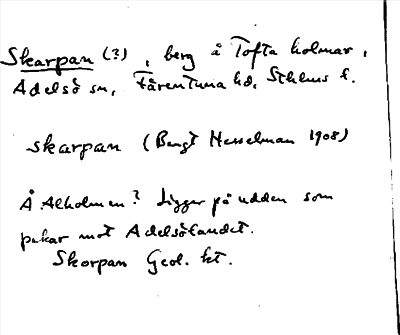 Skarpan (?), berg å Tofta holmar,
Adelsö sn, Färentuna hd, Sthlms l.
skarpan (Bengt Hesselman 1908)
Å Alholmen? Ligger på udden som
pekar mot Adelsölandet.
Skorpan Geol. kt.